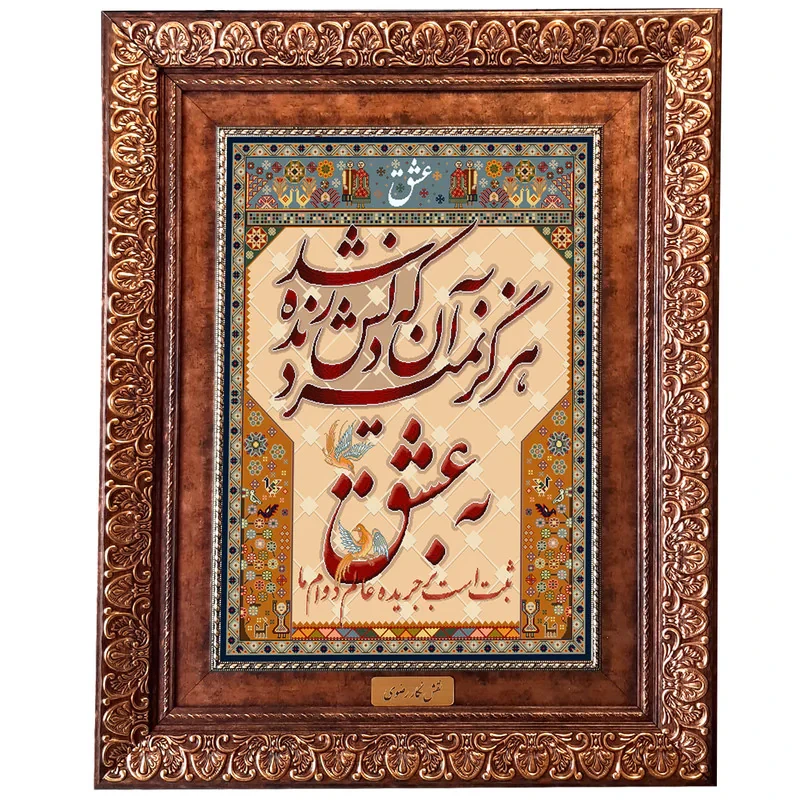 عشق
هرگز نمیرد آن که دلش زنده شد
به عشق
ثبت است بر جریده عالم دوام ما
نقش نگار رضوی